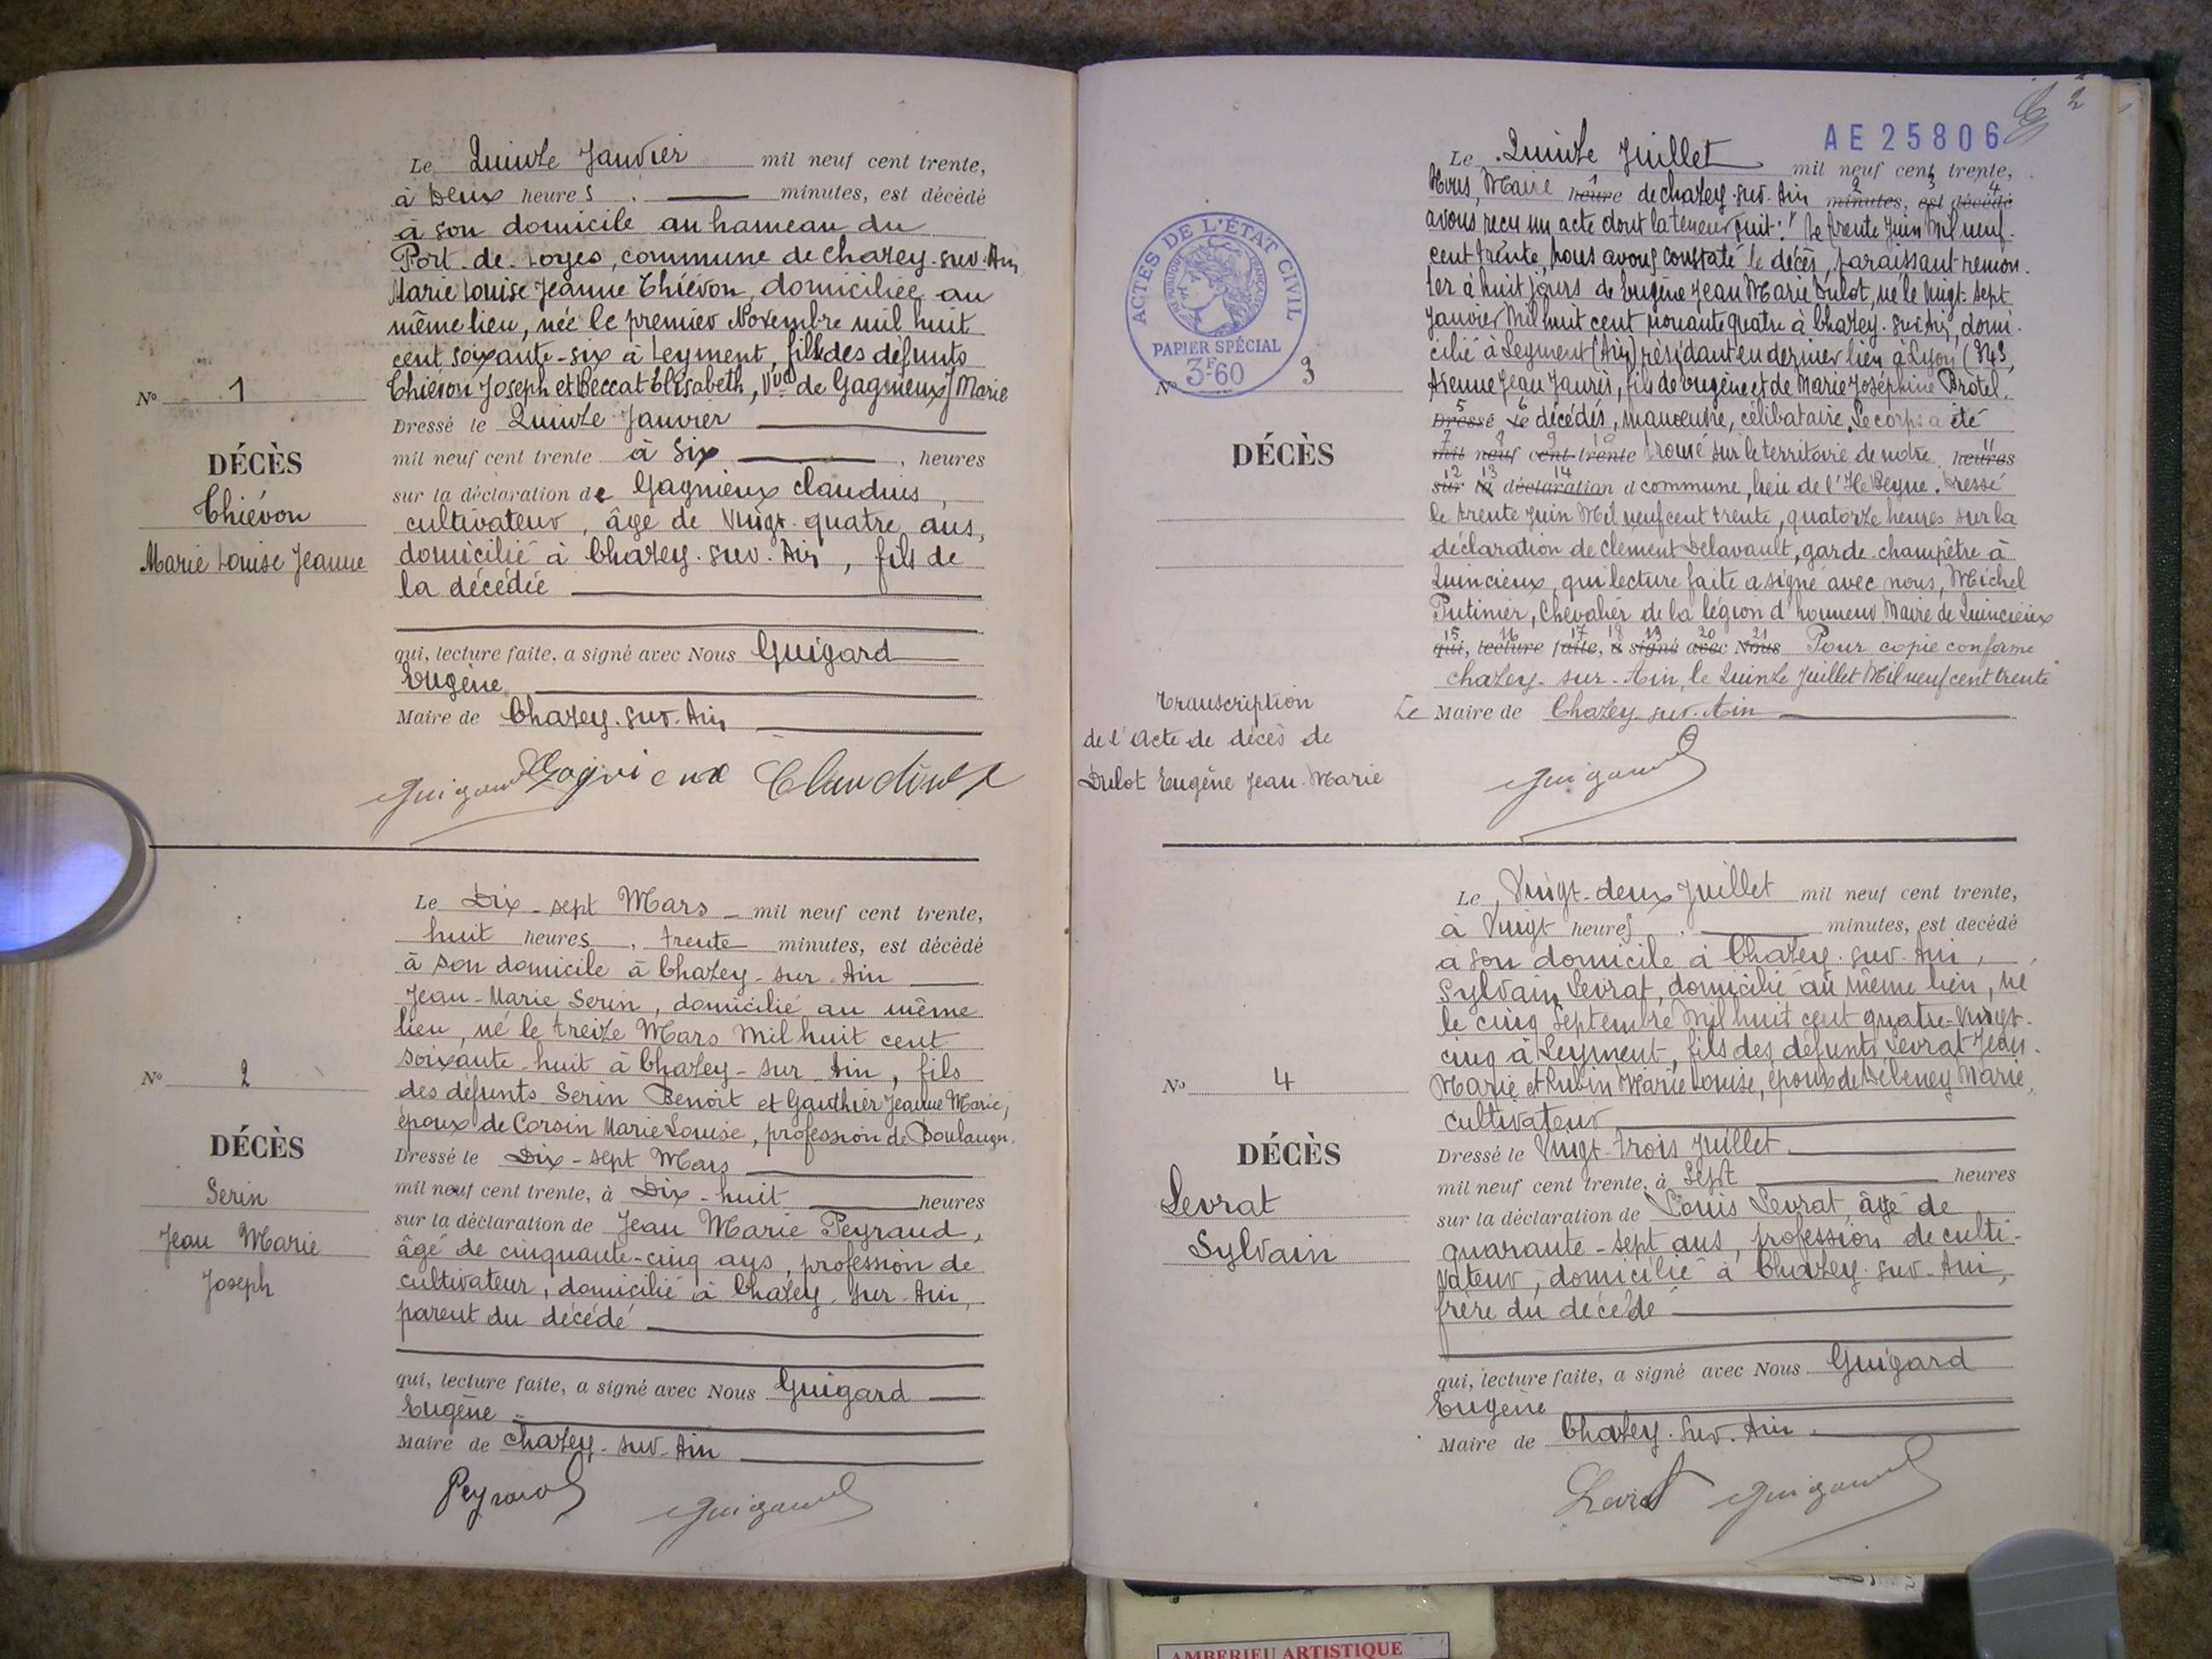 Le Quinze Janvier mil neuf cent trente,
à Deux heures . minutes, est décédé
à son domicile au hameau du
Port-de-Loyes, commune de Chazey-sur-Ain
Marie Louise Jeanne Thiévon, domiciliée au
même lieu, née le premier Novembre mil huit
cent soixante-six à Leyment, fille des défunts
Thiévon Joseph et Beccat Elisabeth, Vve de Gagnieux Marie
Nº 1
Dressé le Quinze Janvier
DÉCÈS
mil neuf cent trente à Six , heures
Thiévon
sur la déclaration de Gagnieux Claudius,
cultivateur, âgé de Vingt-quatre ans,
Marie Louise Jeanne
domicilié à Chazey-sur-Ain, fils de
la décédée
qui, lecture faite, a signé avec Nous Guigard
Eugène
Maire de Chazey-sur-Ain
Guigard Gagnieux Claudius
Le Dix-sept Mars mil neuf cent trente,
huit heures, trente minutes, est décédé
à son domicile à Chazey-sur-Ain
Jean-Marie Serin, domicilié au même
lieu, né le treize Mars Mil huit cent
soixante-huit à Chazey-sur-Ain, fils
Nº 2
des défunts Serin Benoît et Gauthier Jeanne Marie,
époux de Corsin Marie Louise, profession de Boulanger.
DÉCÈS
Dressé le Dix-sept Mars
Serin
mil neuf cent trente, à Dix-huit heures
sur la déclaration de Jean Marie Peyraud,
Jean Marie
âgé de cinquante-cinq ans, profession de
Joseph
cultivateur, domicilié à Chazey-sur-Ain,
parent du décédé
qui, lecture faite, a signé avec Nous Guigard
Eugène
Maire de Chazey-sur-Ain
Peyraud Guigard
2
AE25806
Le Quinze Juillet mil neuf cent trente,
Nous, Maire heure de Chazey-sur-Ain minutes, est décédé
1 2 3 4
avons reçu un acte dont la teneur suit: "Le trente Juin Mil neuf
cent trente, nous avons constaté le décès, paraissant remon-
ter à huit jours de Eugène Jean Marie Dulot, né le Vingt-sept
Janvier Mil huit cent nonante quatre à Chazey-sur-Ain, domi-
cilié à Leyment (Ain) résidant en dernier lieu à Lyon (343,
Avenue Jean Jaurès, fils de Eugène et de Marie Joséphine Brotel,
ACTES DE L'ÉTAT CIVIL
RÉPUBLIQUE FRANÇAISE
PAPIER SPÉCIAL
3F60
Nº 3
5 6
Dressé le décédés, manœuvre, célibataire. Le corps a été
DÉCÈS
7 8 9 10 11
mil neuf cent trente trouvé sur le territoire de notre heures
12 13 14
sur la déclaration d commune, lieu de l'Ile Beyne. Dressé
le trente Juin Mil neuf cent trente, quatorze heures sur la
déclaration de Clément Delavault, garde-champêtre à
Quincieux, qui lecture faite a signé avec nous, Michel
Putinier, Chevalier de la légion d'honneur Maire de Quincieux
15 16 17 18 19 20 21
qui, lecture faite, a signé avec Nous Pour copie conforme
Chazey-sur-Ain, le Quinze Juillet Mil neuf cent trente
Le Maire de Chazey-sur-Ain
Transcription
de l'Acte de décès de
Dulot Eugène Jean-Marie
Guigard
Le Vingt-deux Juillet mil neuf cent trente,
à Vingt heures . minutes, est décédé
à son domicile à Chazey-sur-Ain,
Sylvain Levrat, domicilié au même lieu, né
le cinq Septembre Mil huit cent quatre-Vingt-
cinq à Leyment, fils des défunts Levrat Jean-
Nº 4
Marie et Rubin Marie Louise, époux de Débeney Marie,
cultivateur
DÉCÈS
Dressé le Vingt-trois Juillet
mil neuf cent trente, à Sept heures
Levrat
sur la déclaration de Louis Levrat, âgé de
Sylvain
quarante-sept ans, profession de culti-
vateur, domicilié à Chazey-sur-Ain,
frère du décédé
qui, lecture faite, a signé avec Nous Guigard
Eugène
Maire de Chazey-sur-Ain
Levrat Guigard
AMBERIEU ARTISTIQUE